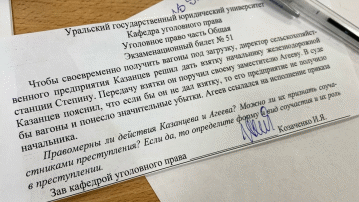 Уральский государственный юридический университет
Кафедра уголовного права
Уголовное право часть Общая
Экзаменационный билет № 51
Чтобы своевременно получить вагоны под погрузку, директор сельскохозяйст-
венного предприятия Казанцев решил дать взятку начальнику железнодорожной
станции Степину. Передачу взятки он поручил своему заместителю Агееву. В суде
Казанцев пояснил, что если бы он не дал взятку, то его предприятие не получило
бы вагоны и понесло значительные убытки. Агеев ссылался на исполнение приказа
начальника.
Правомерны ли действия Казанцева и Агеева? Можно ли их признать соуча-
стниками преступления? Если да, то определите форму соучастия и роль
в преступлении.
Зав кафедрой уголовного права
Козаченко И.Я.